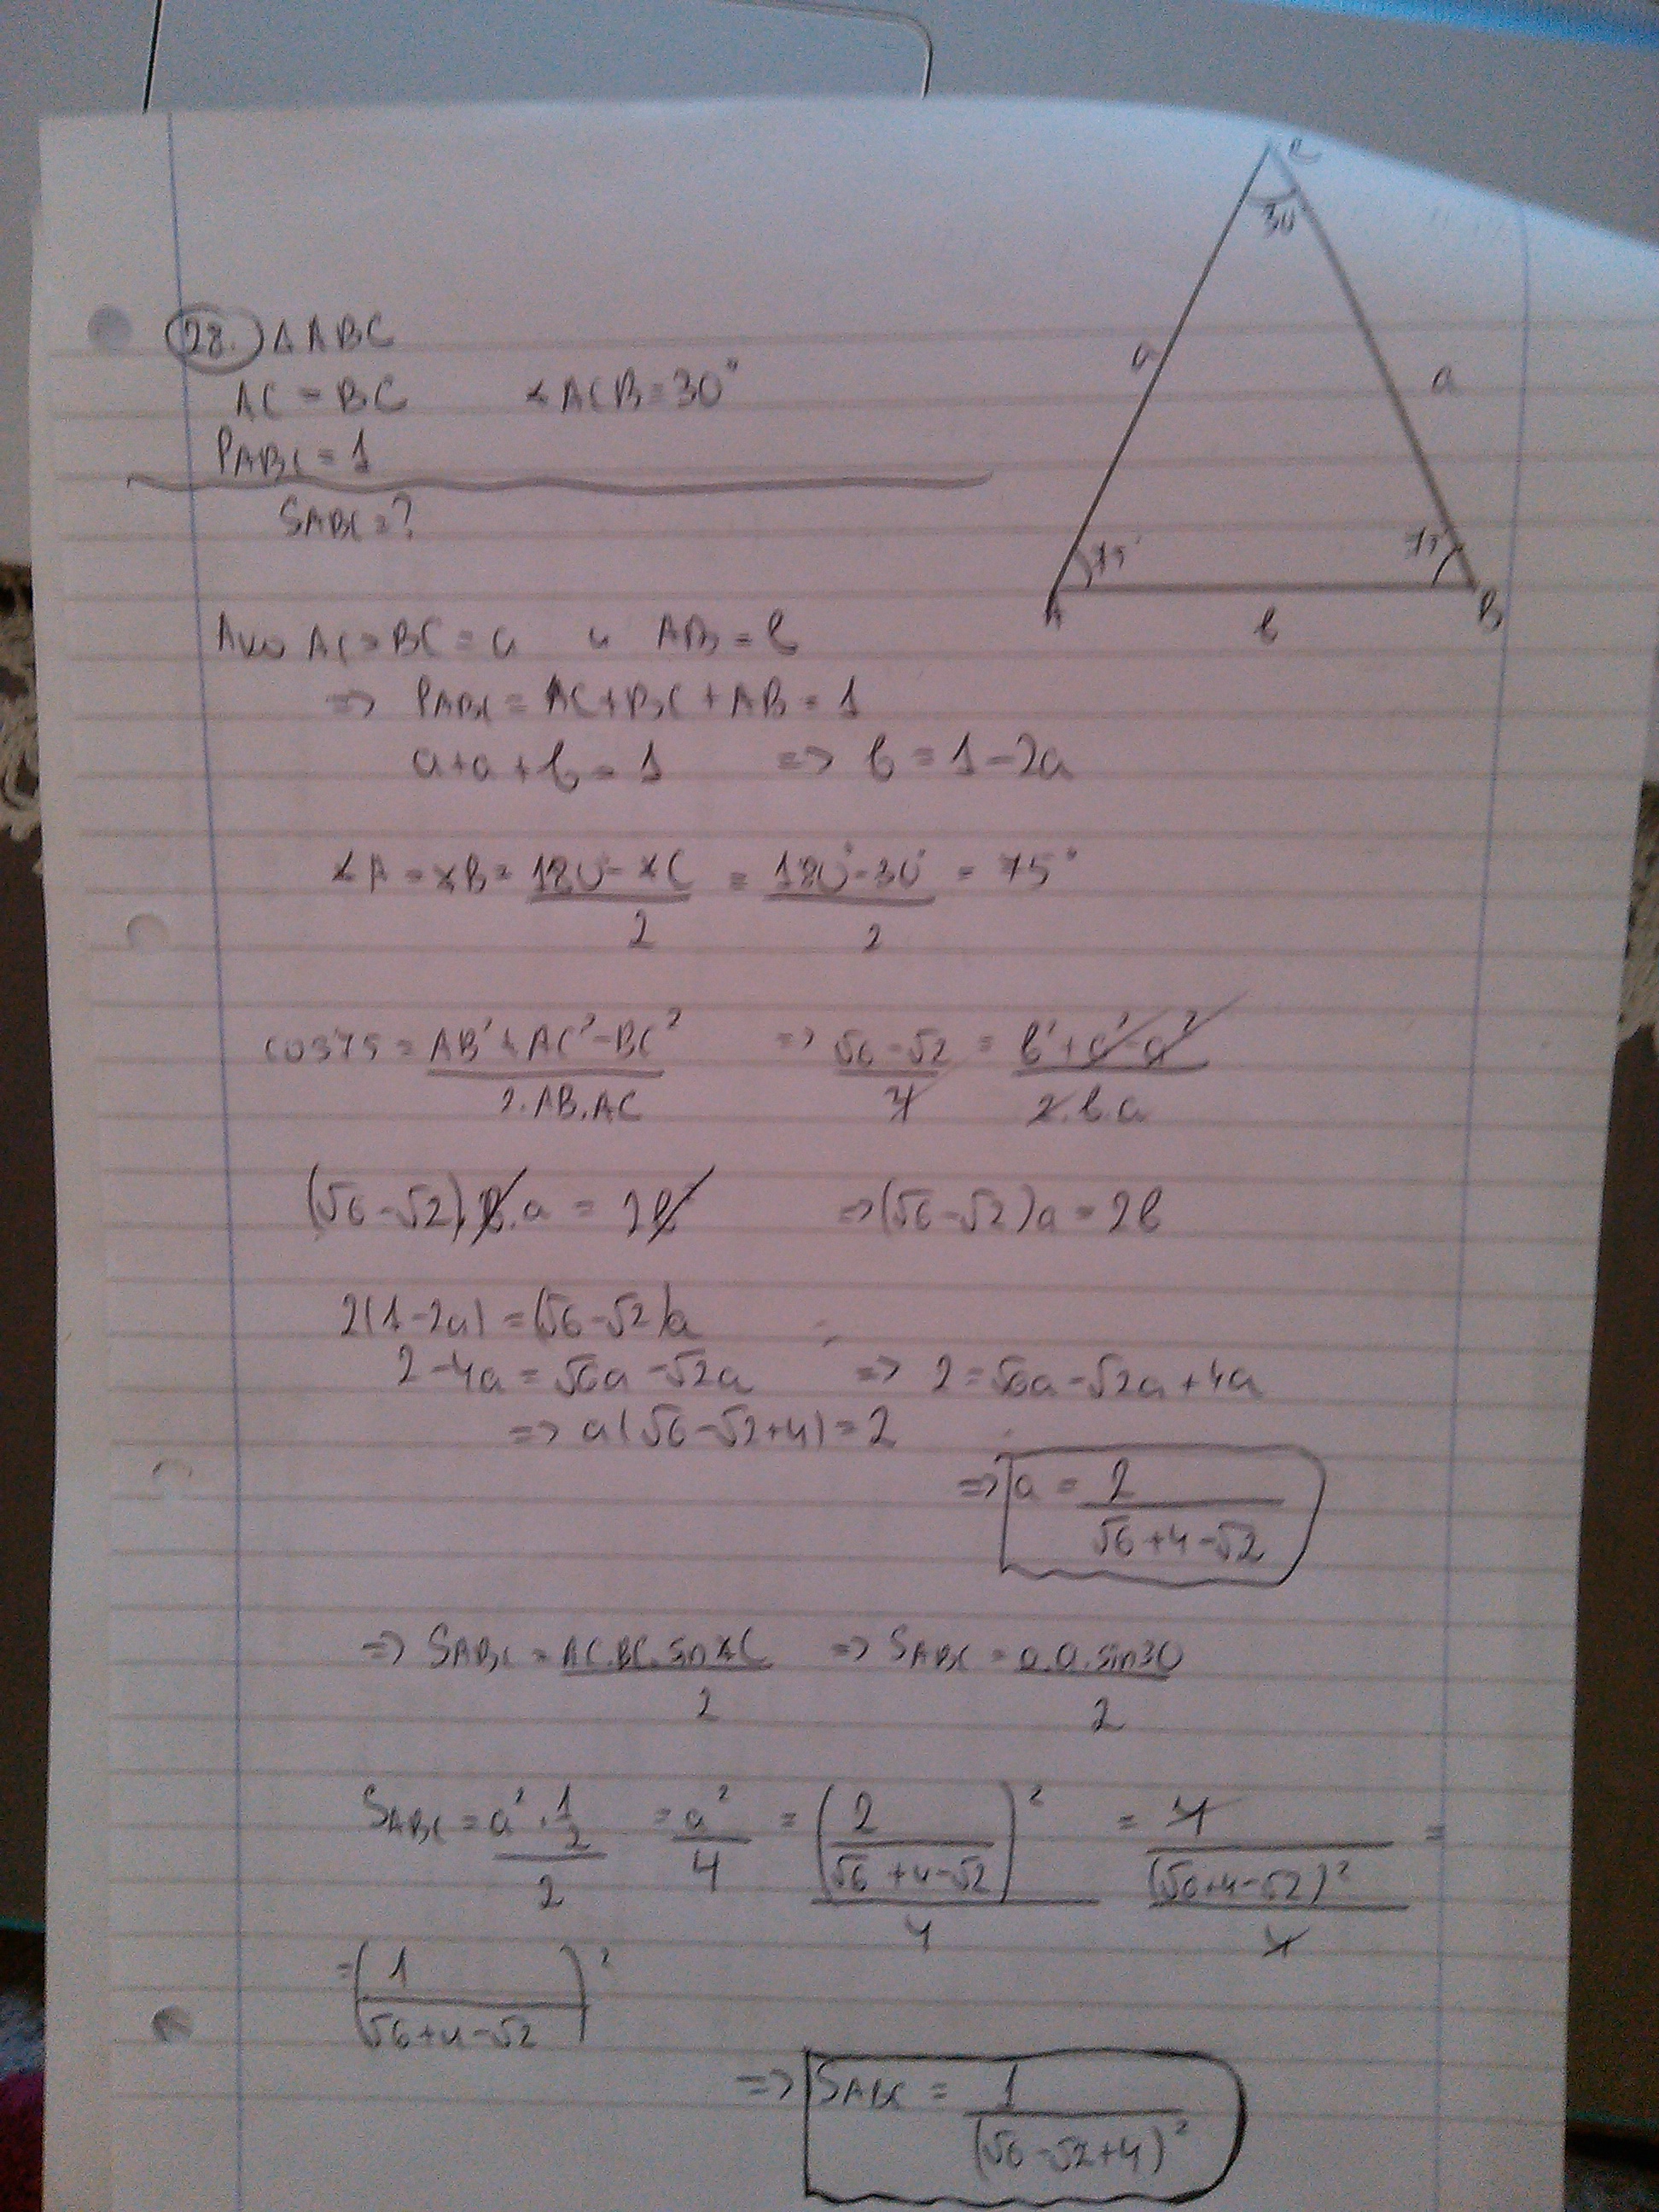 C
30°
28. Δ ABC
AC = BC ∢ ACB = 30°
a a
PABC = 1
SABC = ?
75° 75°
A b B
Ако AC = BC = a и AB = b
=> PABC = AC + BC + AB = 1
a + a + b = 1 => b = 1 - 2a
∢A = ∢B = (180° - ∢C)/2 = (180° - 30°)/2 = 75°
cos75 = (AB² + AC² - BC²)/(2.AB.AC) => (√6 - √2)/4 = (b² + a² - a²)/(2.b.a)
(√6 - √2).b.a = 2b² => (√6 - √2)a = 2b
2(1 - 2a) = (√6 - √2)a
2 - 4a = √6a - √2a => 2 = √6a - √2a + 4a
=> a(√6 - √2 + 4) = 2
=> a = 2/(√6 + 4 - √2)
=> SABC = (AC.BC.sin∢C)/2 => SABC = (a.a.sin30)/2
SABC = (a².1/2)/2 = a²/4 = (2/(√6 + 4 - √2))²/4 = (4/(√6 + 4 - √2)²)/4 =
= (1/(√6 + 4 - √2))²
=> SABC = 1/(√6 - √2 + 4)²